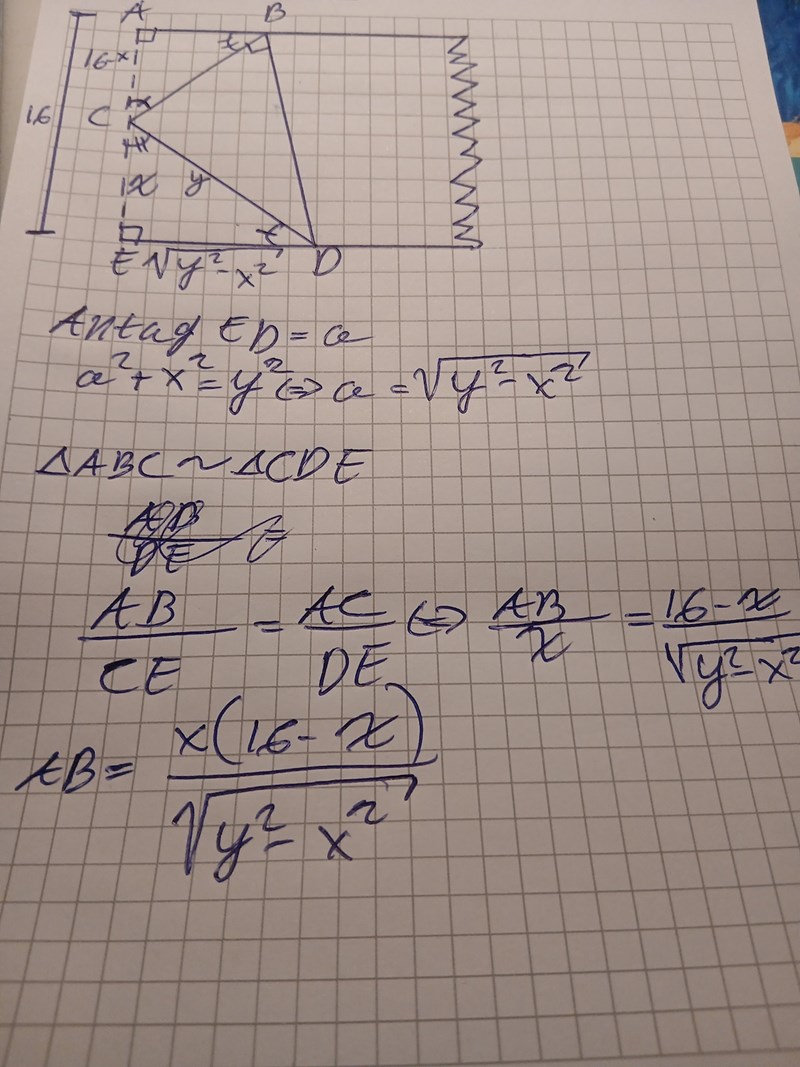 A B
16-x
x
16 C
x y
x
E √y²-x² D
Antag ED = a
a² + x² = y² ⇔ a = √y²-x²
△ABC ~ △CDE
AB/CE = AC/DE ⇔ AB/x = 16-x/√y²-x²
AB = x(16-x)/√y²-x²